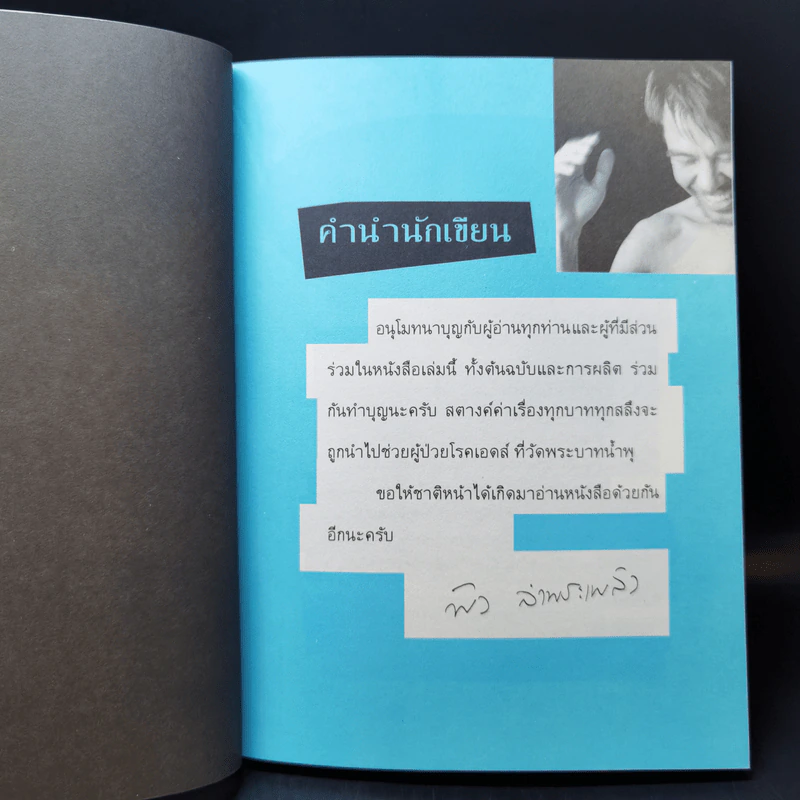 คำนำนักเขียน
อนุโมทนาบุญกับผู้อ่านทุกท่านและผู้ที่มีส่วน
ร่วมในหนังสือเล่มนี้ ทั้งต้นฉบับและการผลิต ร่วม
กันทำบุญนะครับ สตางค์ค่าเรื่องทุกบาททุกสลึงจะ
ถูกนำไปช่วยผู้ป่วยโรคเอดส์ ที่วัดพระบาทน้ำพุ
ขอให้ชาติหน้าได้เกิดมาอ่านหนังสือด้วยกัน
อีกนะครับ
ลำพระเพลิง